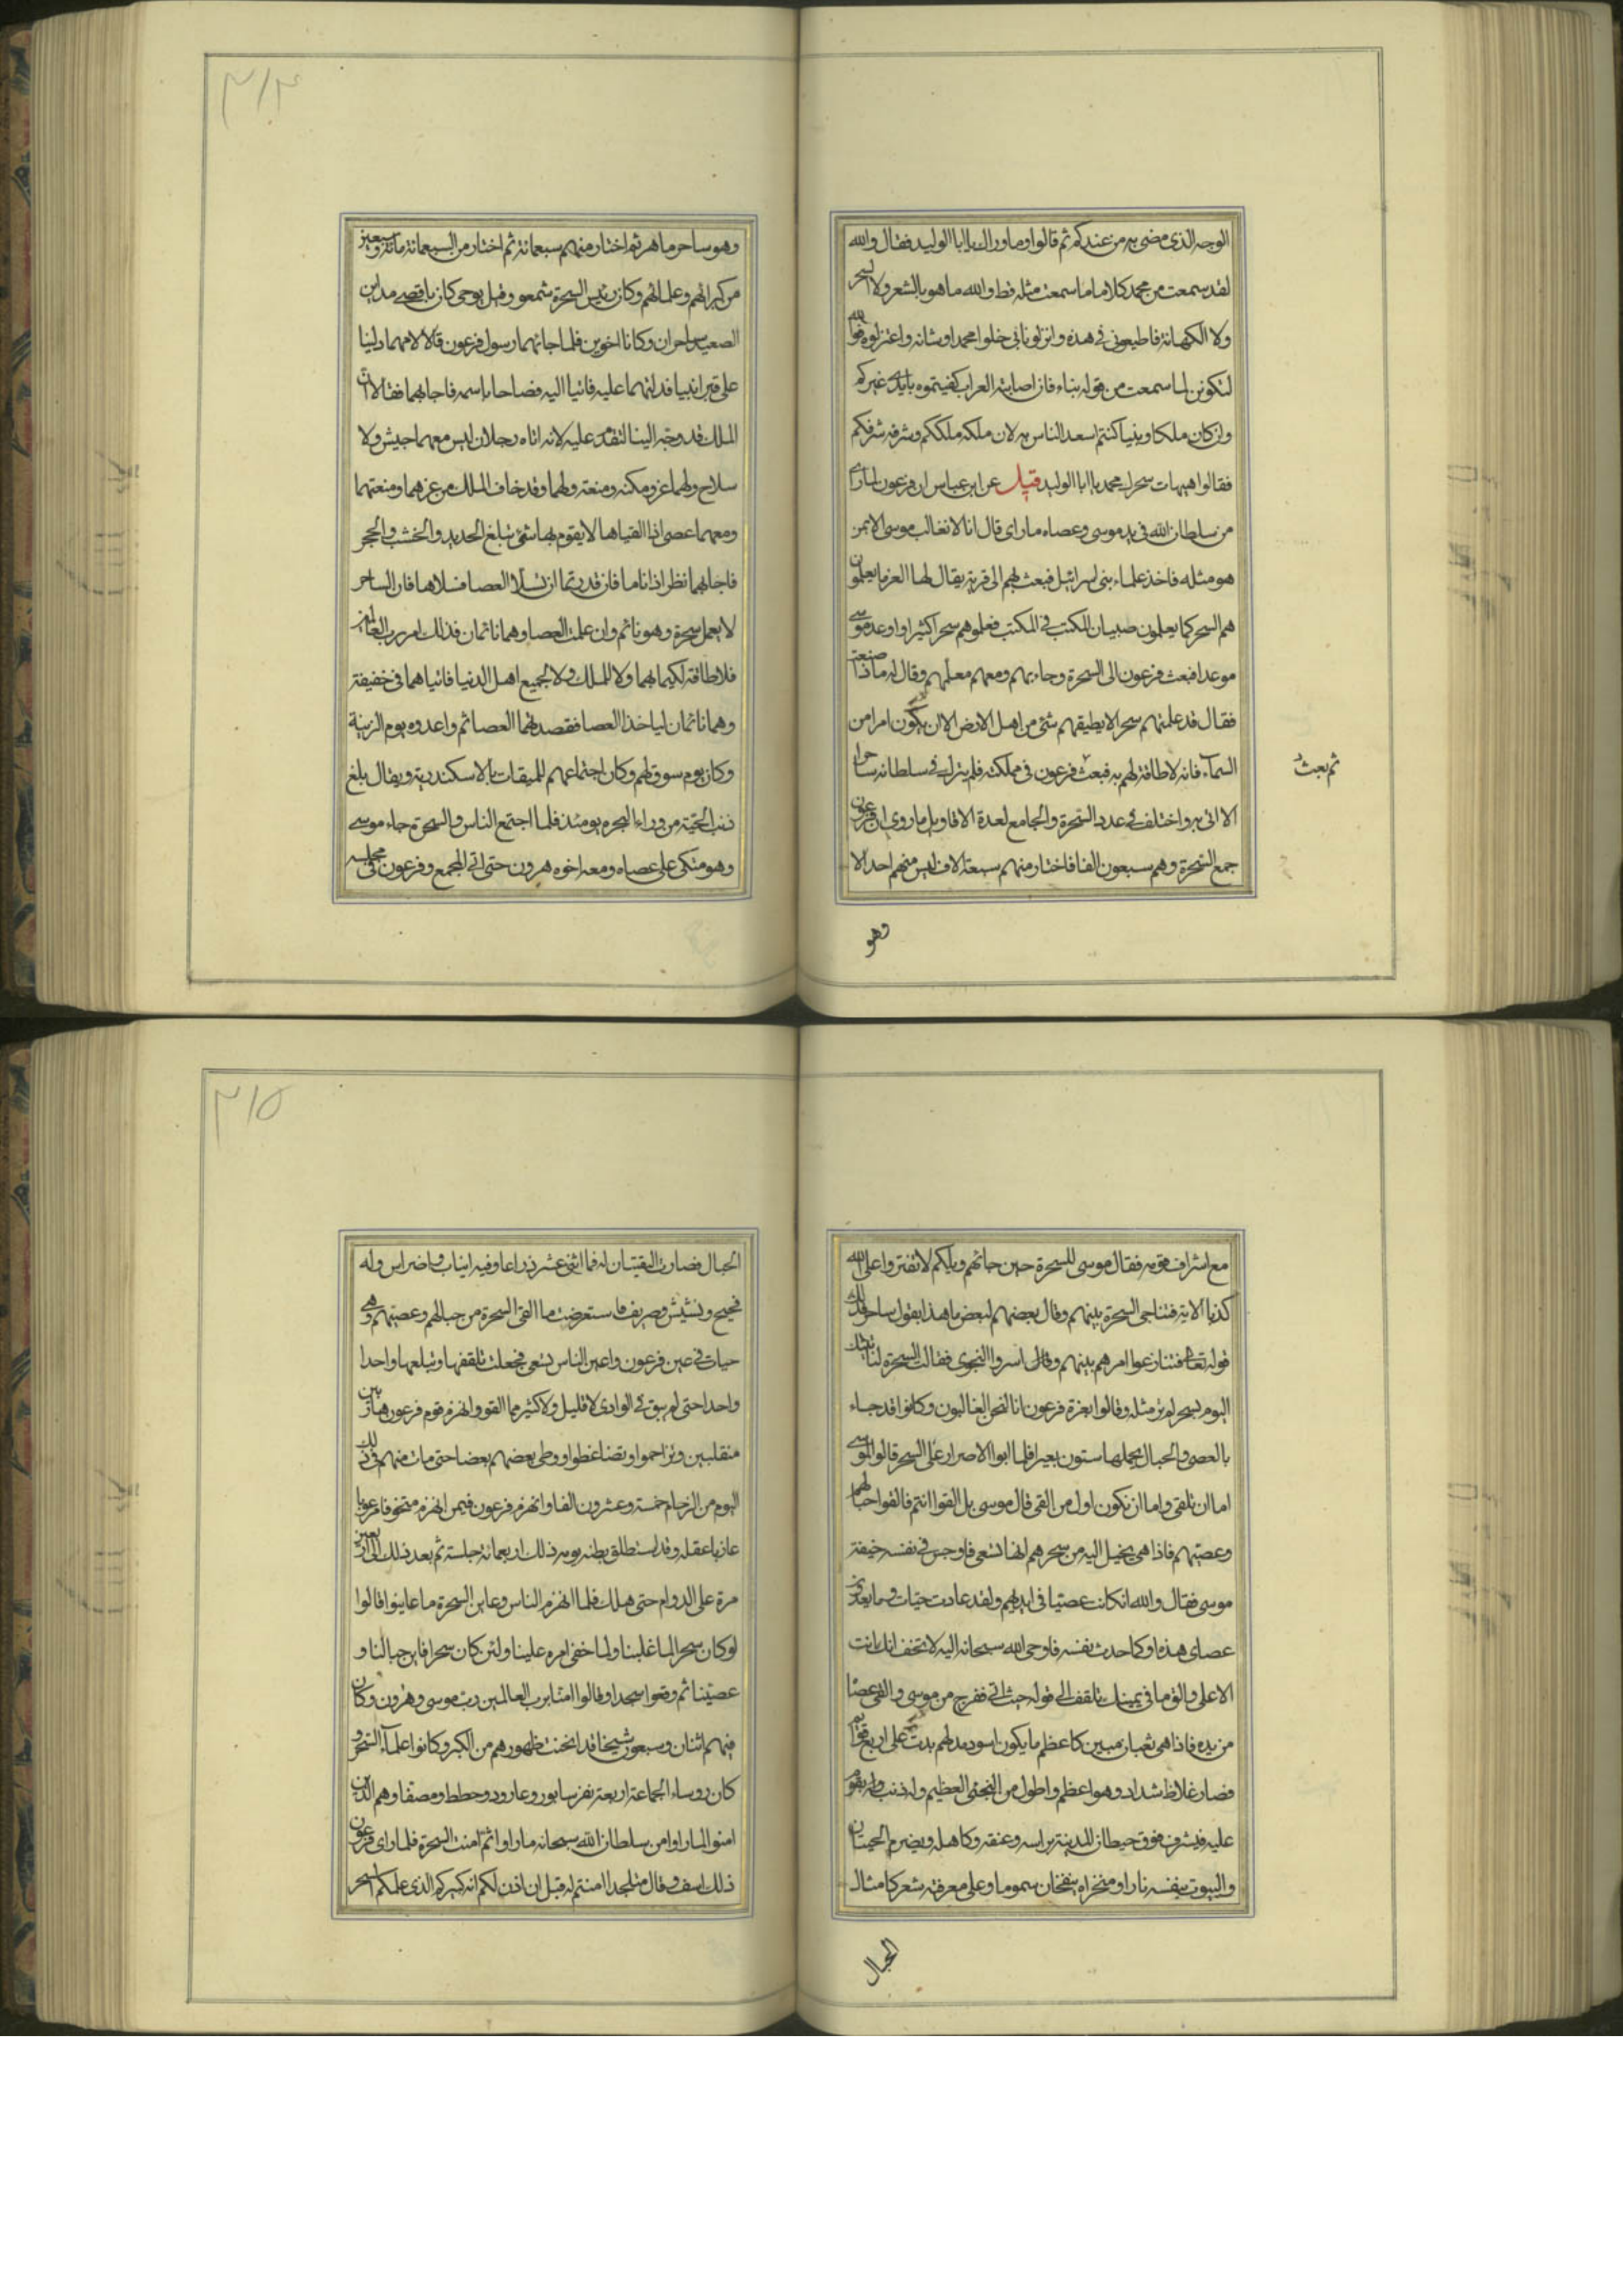 ٣١٤
الوجه الذى مضى به من عندكم ثم قالوا وما وراك يا ابا الوليد فقال والله
لقد سمعت من محمد كلاما ما سمعت مثله قط والله ما هو بالشعر ولا السحر
ولا الكهانة فاطيعونى فى هذه وانزلونا بى خلوا محمدا وشانه واعتزلوه فوالله
لتكونن لما سمعت من قوله بناء فان اصابته العرب كفيتموه بايدى غيركم
وان كان ملكا وبنيا كنتم اسعد الناس به لان ملكه ملككم وشرفه شرفكم
فقالوا هيهات سحرك محمد يا ابا الوليد قيل عن ابن عباس ان فرعون لما راى
من سلطان الله فى يد موسى وعصاه ما راى قال انا لا نغالب موسى الا بمن
هو مثله فاخذ علماء بنى اسرائيل فبعث بهم الى قرية يقال لها العزما يعلمون
هم السحر كما يعلمون صبيان المكتب فى المكتب فعلموهم سحرا كثيرا واوعد موسى
موعدا فبعث فرعون الى السحرة وجاء بهم ومعهم معلمهم وقال له ماذا صنعت
فقال قد علمتهم سحرا لا يطيقهم شئ من اهل الارض الا ان يكون امرا من
السمآء فانه لا طاقة لهم به فبعث فرعون فى مملكته فلم يترك فى سلطانه ساحرا
ثم بعث
الا اتى به واختلف فى عدد السحرة والجامع لعدة الاقاويل ما روى ان فرعون
جمع السحرة وهم سبعون الفا فاختار منهم سبعة الاف ليس منهم احد الا
وهو
وهو ساحر ماهر ثم اختار منهم سبعمائة ثم اختار من السبعمائة مائة وسبعين
من كبرائهم وعلمائهم وكان رئيس السحرة شمعو وقيل يوحى كان باقصى مداين
الصعيد ساحران وكانا اخوين فلما جائهما رسول فرعون قالا لامهما دلينا
على قبر ابينا فدلتهما عليه فاتيا اليه فصاحا باسمه فاجابهما فقالا ان
الملك قد وجه الينا لنقدم عليه لانه اتاه رجلان ليس معهما جيش ولا
سلاح ولهما عز ومكنه ومنعة ولهما وقد خاف الملك من عزهما ومنعتهما
ومعهما عصى اذا القياها لا يقوم بها شئ تبلغ الحديد والخشب والحجر
فاجابهما نظر اذا ناما فان قدرتما ان تسلا العصا فسلاها فان الساحر
لا يعمل سحره وهو نائم وان عملت العصا وهما نائمان فذلك امر رب العالمين
فلا طاقة لكيما بهما ولا للملك ولا لجميع اهل الدنيا فاتيا هما فى خفيفة
وهما نائمان لياخذا العصا فقصدتهما العصا ثم واعدوه يوم الزينة
وكان يوم سوق لهم وكان اجتماعهم للميقات بالاسكندرية ويقال بلغ
ذنب الحية من وراء البحره يومئذ فلما اجتمع الناس والسحرة جاء موسى
وهو متكى على عصاه ومعه اخوه هرون حتى اتى المجمع وفرعون فى مجلسه
٣١٥
مع اشراف قومه فقال موسى للسحرة حين جائهم ويلكم لا تفتروا على الله
كذبا الاية فتناجى السحرة بينهم وقال بعضهم لبعض ما هذا بقول ساحر فذلك
قوله تعالى فتنازعوا امرهم بينهم وقال اسروا النجوى فقالت السحرة لناتينك
اليوم بسحر لم تر مثله وقالوا بعزة فرعون انا لنحن الغالبون وكانوا قد جاء
بالعصى والحبال يحملها ستون بعيرا فلما ابوا الا صرار على السحر قالوا لموسى
اما ان تلقى واما ان نكون اول من القى قال موسى بل القوا انتم فالقوا حبالهم
وعصيهم فاذا هى يخيل اليه من سحرهم انها تسعى فاوجس فى نفسه خيفة
موسى فقال والله ان كانت عصيا فى ايديهم ولقد عادت حيات وما يعدون
عصاى هذه او كما حدث نفسه فاوحى الله سبحانه اليه لا تخف انك انت
الاعلى والق ما فى يمينك تلقف الى قوله حيث اتى ففرح من موسى والقى عصا
من يده فاذا هى ثعبان مبين كاعظم ما يكون اسود مدلهم يدب على اربع قوائم
فصار غلاظ شداد وهو اعظم واطول من البختى العظيم وله ذنب وله يقوم
عليه فيشرف فوق حيطان المدينة براسه وعنقه وكاهله ويضرم الحيتان
والبيوت بنفسه نارا ومنخراه ينفخان سموما وعلى معرفته شعر كامثال
الحبال
الحبال فصارت النقبتان له فما اثنى عشر ذراعا وفيه انياب واضراس وله
فحيح ونشيش وصريف فاستعرضت ما القى السحرة من حبالهم وعصيهم وهى
حيات فى عين فرعون واعين الناس تسعى فجعلت تلقفها وتبلعها واحدا
واحدا حتى لم يبق فى الوادى لا قليل ولا كثير مما القوا وانهزم قوم فرعون هاربين
منقلبين وتزاحموا وتضاغطوا ووطى بعضهم بعضا حتى مات منهم فى ذلك
اليوم من الزحام خمسة وعشرون الفا وانهزم فرعون فيمن انهزم منخوفا مرعوبا
عازبا عقله وقد استطلق بطنه يومه ذلك اربعمائة جلسة ثم بعد ذلك الى اربعين
مرة على الدوام حتى هلك فلما انهزم الناس وعاين السحرة ما عاينوا قالوا
لو كان سحرا لما غلبنا ولما خفى امره علينا ولئن كان سحرا فاين حبالنا و
عصيتنا ثم وقعوا سجدا وقالوا امنا برب العالمين رب موسى وهرون وكان
فيهم اثنان وسبعون شيخا قد انحنت ظهورهم من الكبر وكانوا علمآء السحر و
كان روساء الجماعة اربعة نفر سابور وعارور وحطط ومصفا وهم الذين
امنوا لما راوا من سلطان الله سبحانه ما راوا ثم امنت السحرة فلما راى فرعون
ذلك اسف وقال متلجدا امنتم له قبل ان اذن لكم انه كبيركم الذى علمكم السحر